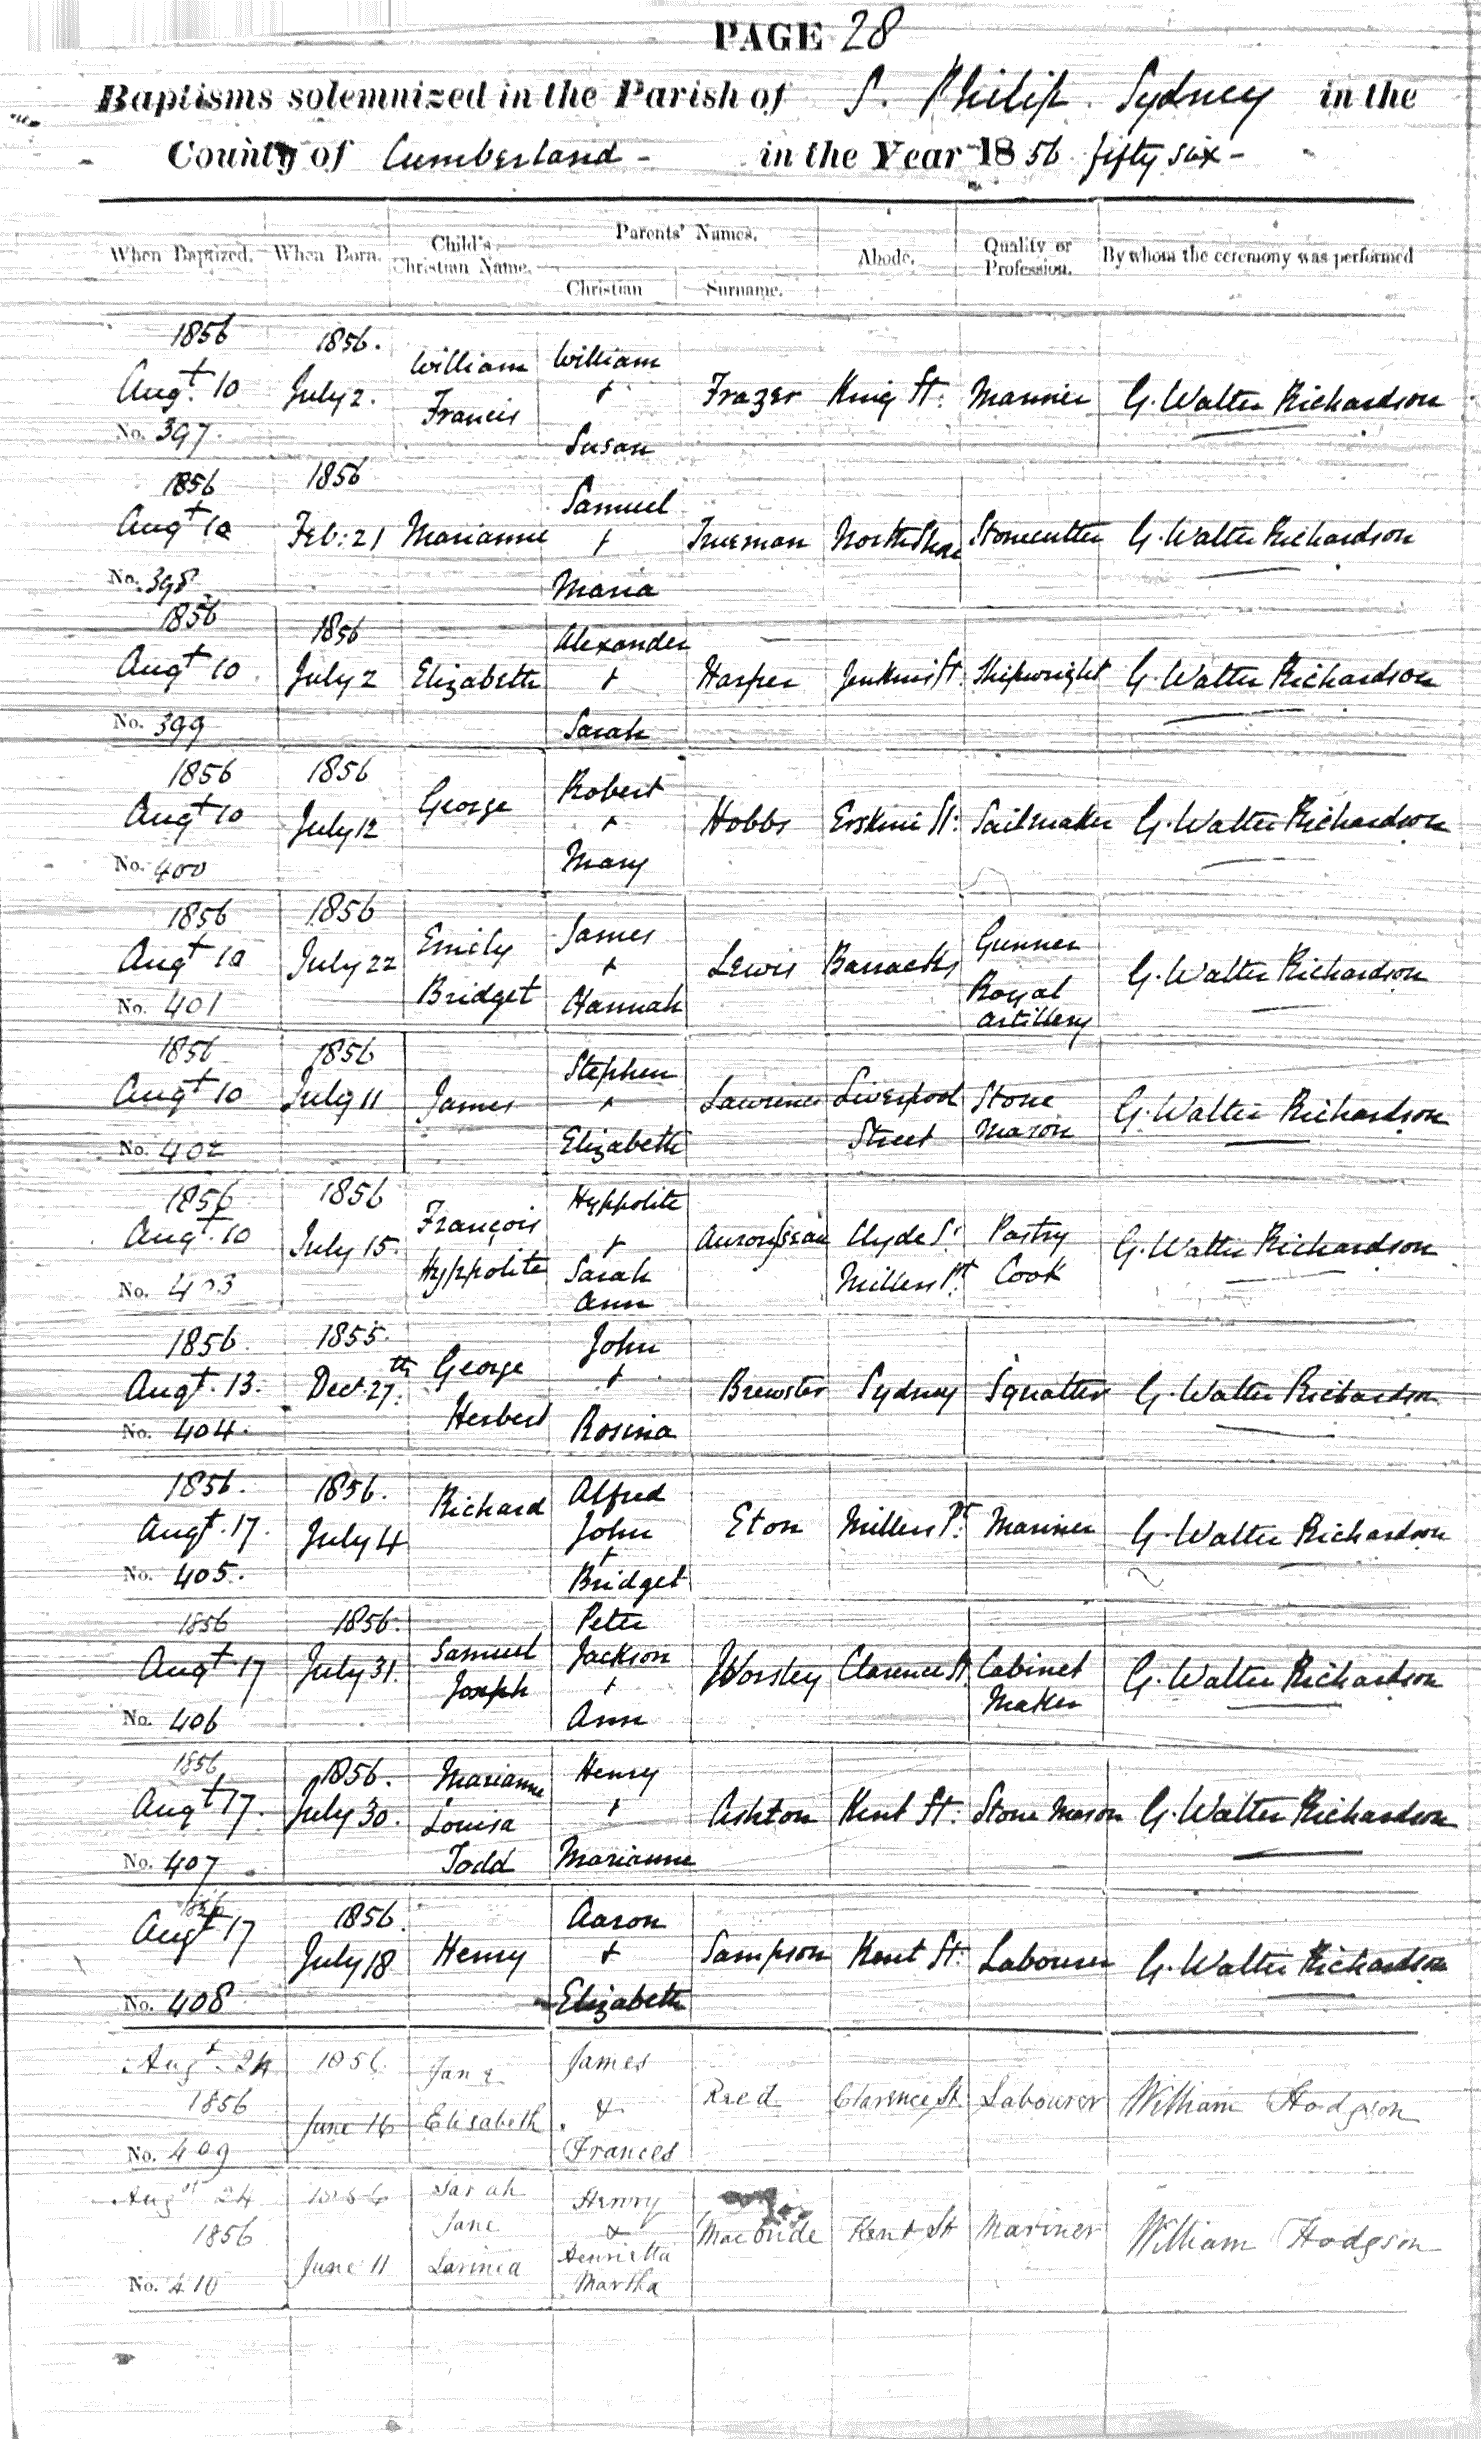 PAGE 28
Baptisms solemnized in the Parish of S. Philip Sydney in the
County of Cumberland - in the Year 1856 fifty six -
When Baptized. When Born. Child's Christian Name. Parents' Names. Christian Surname. Abode. Quality or Profession. By whom the ceremony was performed
1856 1856.
Augt. 10 July 2. William Francis William + Susan Frazer King St. Mariner G. Walter Richardson
No. 397.
1856 1856
Augt 10 Feb: 21 Marianne Samuel + Maria Trueman North Shore Stonecutter G. Walter Richardson
No. 398
1856 1856
Augt 10 July 2 Elizabeth Alexander + Sarah Harper Jenkins St. Shipwright G. Walter Richardson
No. 399
1856 1856
Augt 10 July 12 George Robert + Mary Hobbs Erskine St: Sailmaker G. Walter Richardson
No. 400
1856 1856
Augt 10 July 22 Emily Bridget James + Hannah Lewis Barracks Gunner Royal Artillery G. Walter Richardson
No. 401
1856 1856
Augt 10 July 11 James Stephen + Elizabeth Lawrence Liverpool Street Stone Mason G. Walter Richardson
No. 402
1856 1856
Augt. 10 July 15. François Hyppolite Hyppolite + Sarah Ann Clyde St. Millers Pt. Pastry Cook G. Walter Richardson
No. 403
1856. 1855.
Augt. 13. Decr. 27th. George Herbert John + Rosina Brewster Sydney Squatter G. Walter Richardson
No. 404.
1856. 1856.
Augt. 17. July 4 Richard Alfred John + Bridget Eton Millers Pt. Mariner G. Walter Richardson
No. 405.
1856 1856.
Augt 17 July 31. Samuel Joseph Peter Jackson + Ann Worsley Clarence St Cabinet Maker G. Walter Richardson
No. 406
1856 1856.
Augt 17. July 30. Marianne Louisa Todd Henry + Marianne Ashton Kent St: Stone Mason G. Walter Richardson
No. 407
1856 1856.
Augt 17 July 18 Henry Aaron + Elizabeth Sampson Kent St: Labourer G. Walter Richardson
No. 408
Augt. 24 1856 1856. June 16 Jane Elisabeth James & Frances Reed Clarence St. Labourer William Hodgson
No. 409
Augst 24 1856 1856 June 11 Sarah Jane Larinea Henry & Henrietta Martha Macbride Kent St Mariner William Hodgson
No. 410